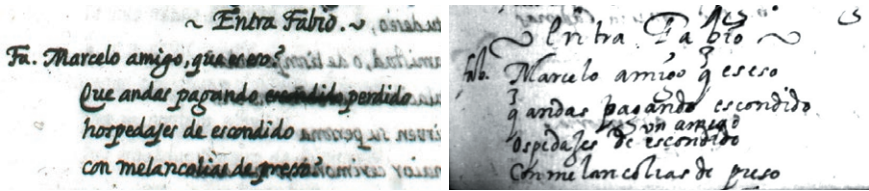 ~ Entra Fabio. ~
Fa. Marcelo amigo, que es eso?
Que andas pagando escondido perdido
hospedajes de escondido
con melancolias de preso?
~ Entra Fabio ~
fab. Marcelo amigo q̃ es eso
q̃ andas pagando escondido
un amigo
ospidajes de escondido
Con melancolias de preso